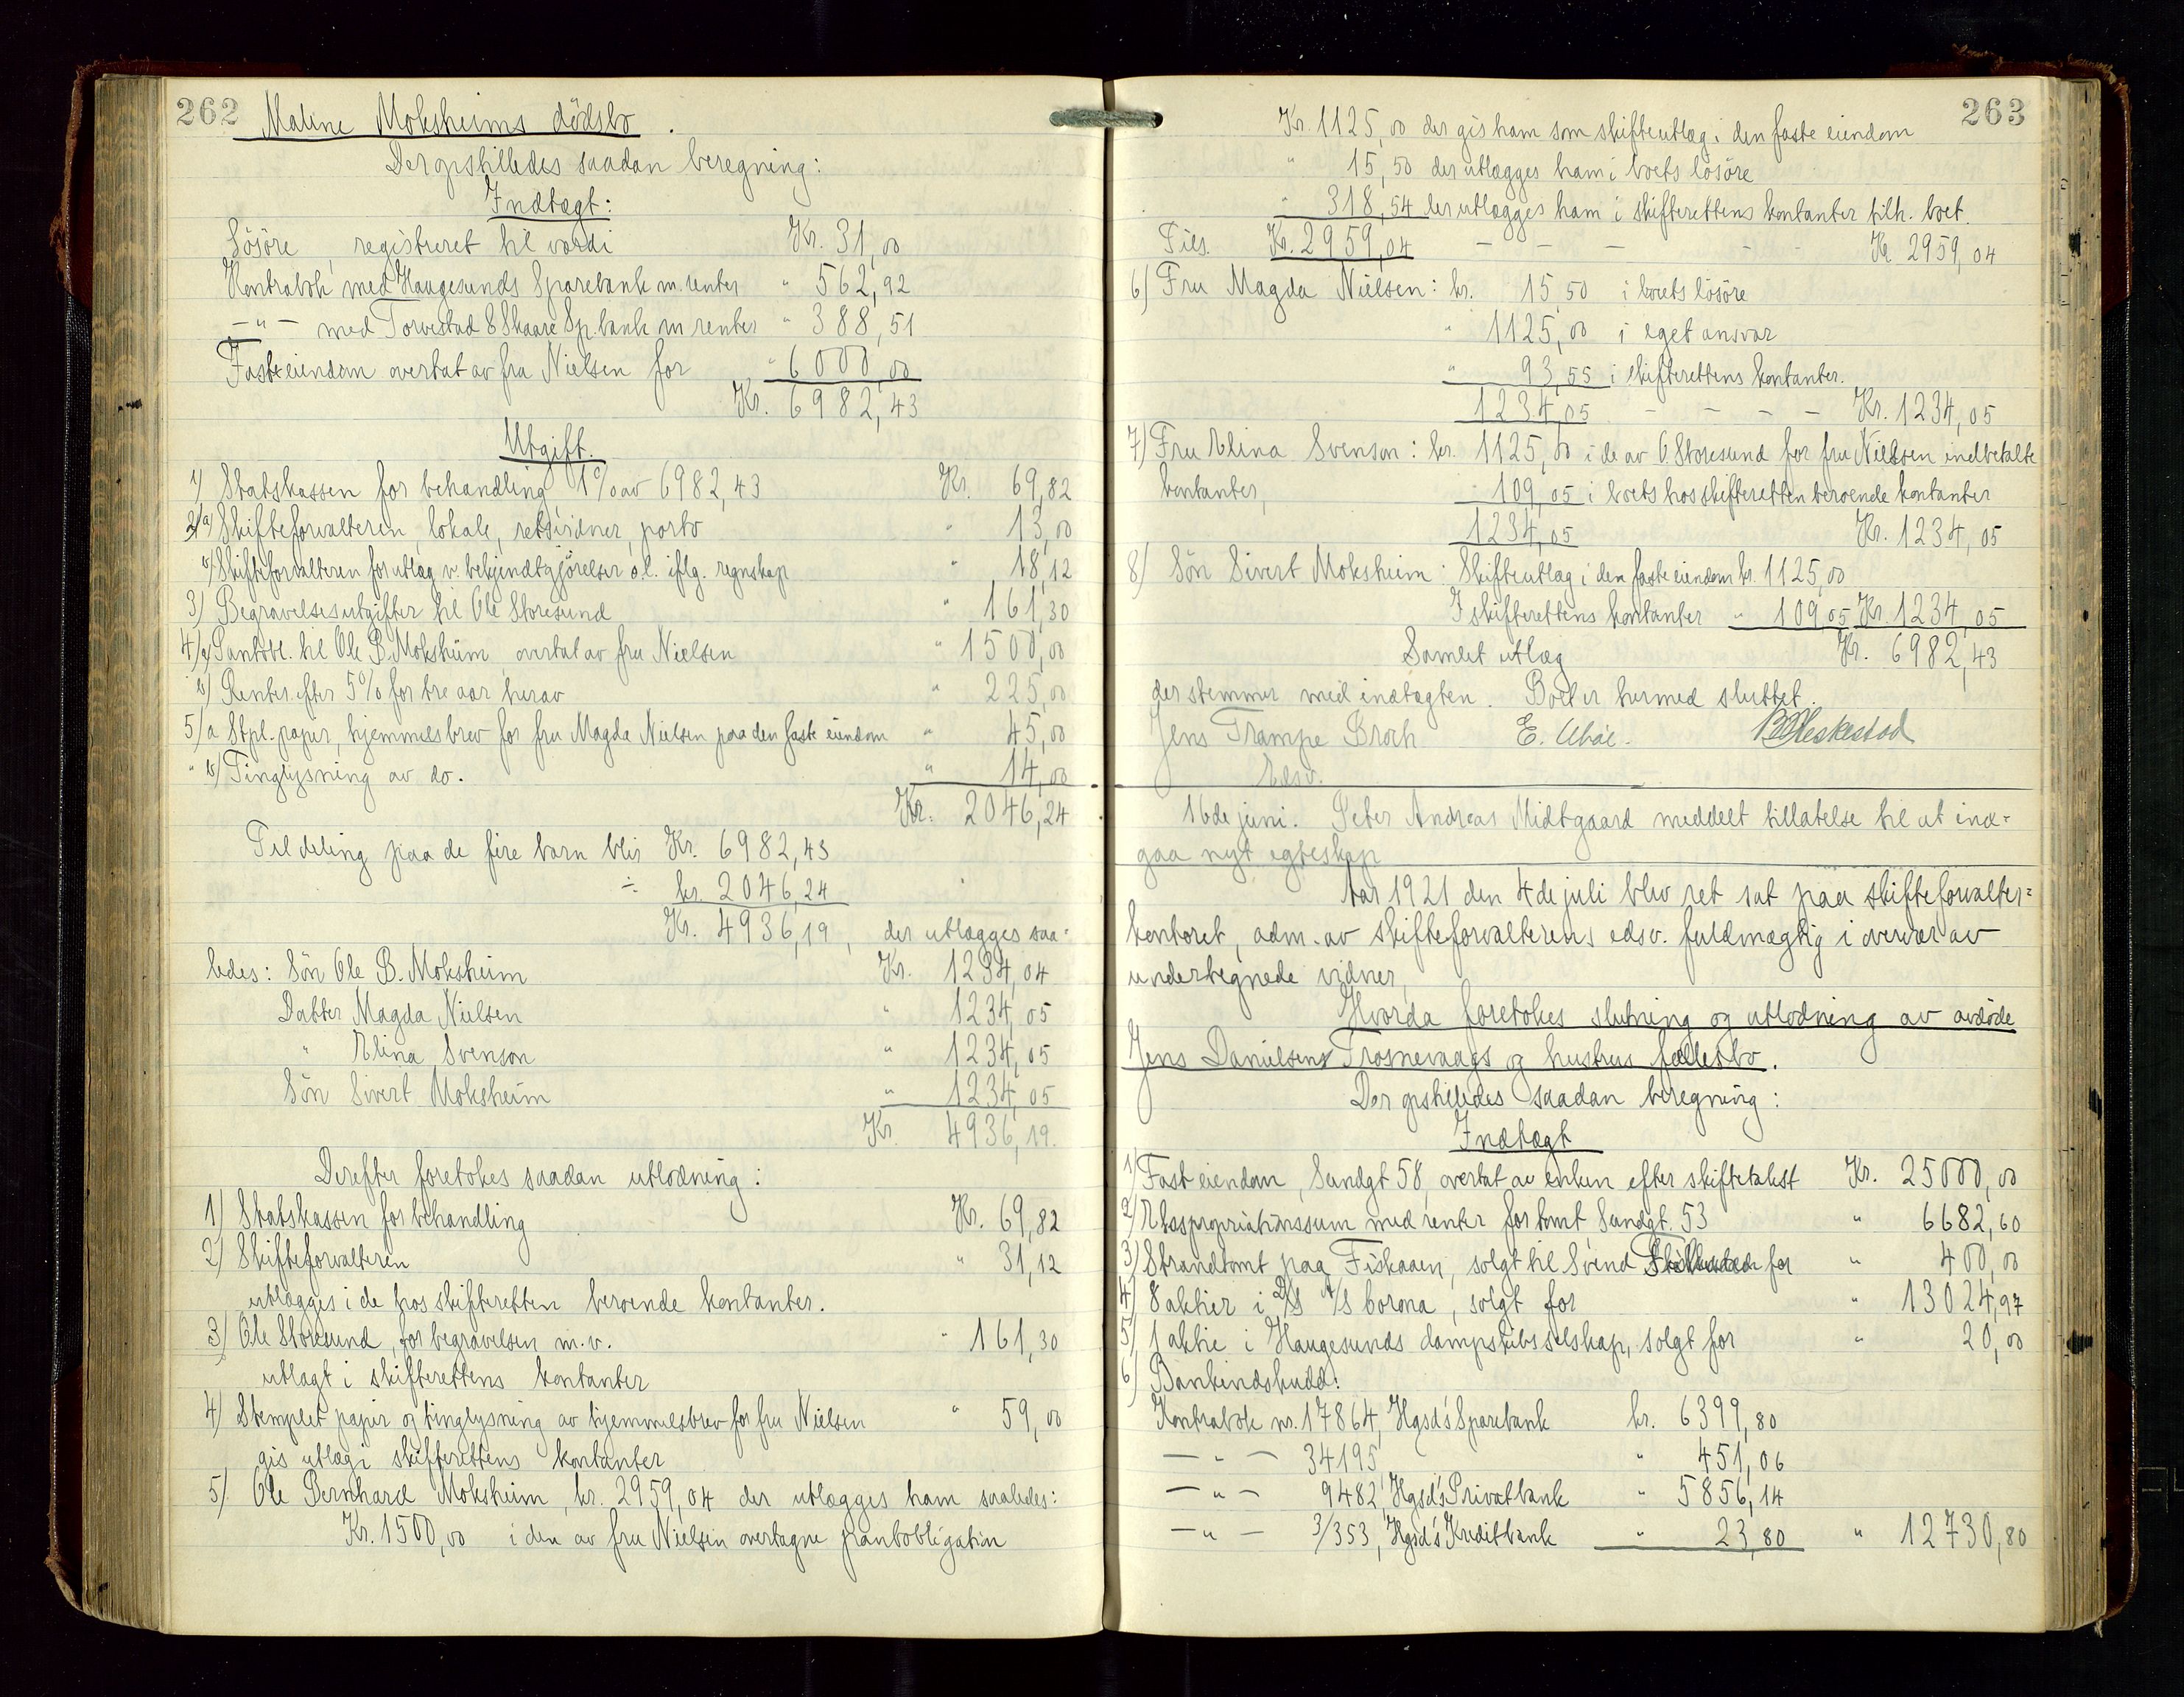 262 Maline Moksheims dödsbo.
Der opstilledes saadan beregning:
Indtægt:
Lösöre, registreret til værdi Kr. 31,00
Kontrabok med Haugesunds Sparebank m. renter " 562,92
— " — med Torvestad & Skaare Sp.bank m renter " 388,51
Fast eiendom overtat av fru Nielsen for " 6000,00
Kr. 6982,43
Utgift.
1) Statskassen for behandling 1% av 6982,43 Kr. 69,82
2/a) Skifteforvalteren, lokale, retsvidner, porto " 13,00
b) Skifteforvalteren for utlæg v. bekjendtgjörelser o.l. iflg. regnskap " 18,12
3) Begravelsesutgifter til Ole Storesund " 161,30
4/a) Pantobl. til Ole B. Moksheim overtat av fru Nielsen " 1500,00
b) Renter efter 5% for tre aar herav " 225,00
5/a Stpl. papir, hjemmelsbrev for fru Magda Nielsen paa den faste eiendom " 45,00
" b) Tinglysning av do. " 14,00
Kr. 2046,24
Til deling paa de fire barn blir Kr. 6982,43
÷ kr. 2046,24
Kr. 4936,19, der utlægges saa-
ledes: Sön Ole B. Moksheim Kr. 1234,04
Datter Magda Nielsen " 1234,05
" Elina Svenson " 1234,05
Sön Sivert Moksheim " 1234,05
Kr. 4936,19.
Derefter foretokes saadan utlodning:
1) Statskassen for behandling Kr. 69,82
2) Skifteforvalteren " 31,12
utlægges i de hos skifteretten beroende kontanter.
3) Ole Storesund, for begravelsen m.v. " 161,30
utlagt i skifterettens kontanter
4) Stemplet papir og tinglysning av hjemmelsbrev for fru Nielsen " 59,00
gis utlæg i skifterettens kontanter
5) Ole Bernhard Moksheim, kr. 2959,04 der utlægges ham saaledes:
Kr. 1500,00 i den av fru Nielsen overtagne pantobligation
263
Kr. 1125,00 der gis ham som skifteutlæg i den faste eiendom
" 15,50 der utlægges ham i boets lösöre
" 318,54 der utlægges ham i skifterettens kontanter tilh. boet.
Tils. Kr. 2959,04 — — — - - Kr 2959,04
6) Fru Magda Nielsen: kr. 15,50 i boets lösöre
" 1125,00 i eget ansvar
" 93,55 i skifterettens kontanter.
1234,05 — — — — Kr. 1234,05
7) Fru Elina Svenson: kr. 1125,00 i de av O. Storesund for fru Nielsen indbetalte
kontanter, 109,05 i boets hos skifteretten beroende kontanter
1234,05 Kr. 1234,05
8) Sön Sivert Moksheim: Skifteutlæg i den faste eiendom kr. 1125,00
I skifterettens kontanter " 109,05 Kr. 1234,05
Samlet utlæg Kr. 6982,43
der stemmer med indtægten. Boet er hermed sluttet.
Jens Trampe Broch E. B. Heskestad
Edsv.
16de juni. Peter Andreas Midtgaard meddelt tillatelse til at ind-
gaa nyt egteskap
Aar 1921 den 4de juli blev ret sat paa skifteforvalter-
kontoret, adm. av skifteforvalterens edsv. fuldmægtig i overvær av
undertegnede vidner,
Hvorda foretokes slutning og utlodning av avdöde
Jens Danielsens Trosnevaags og hustrus fællesbo.
Der opstilledes saadan beregning:
Indtægt
1) Fast eiendom, Sundgt 58, overtat av enken efter skiftetakst Kr. 25000,00
2) Ekspropriationssum med renter for tomt Sundgt. 53 " 6682,60
3) Strandtomt paa Fiskaaen, solgt til Svend for " 400,00
4) 8 aktier i D/S A/S Corona, solgt for " 13024,97
5) 1 aktie i Haugesunds dampskibsselskap, solgt for " 20,00
6) Bankindskudd:
Kontrabok nr. 17864, Hgsd's Sparebank kr. 6399,80
— " — 34195 " 451,06
— " — 9482, Hgsd's Privatbank " 5856,14
— " — 3/353, Hgsd's Kreditbank " 23,80 " 12730,80